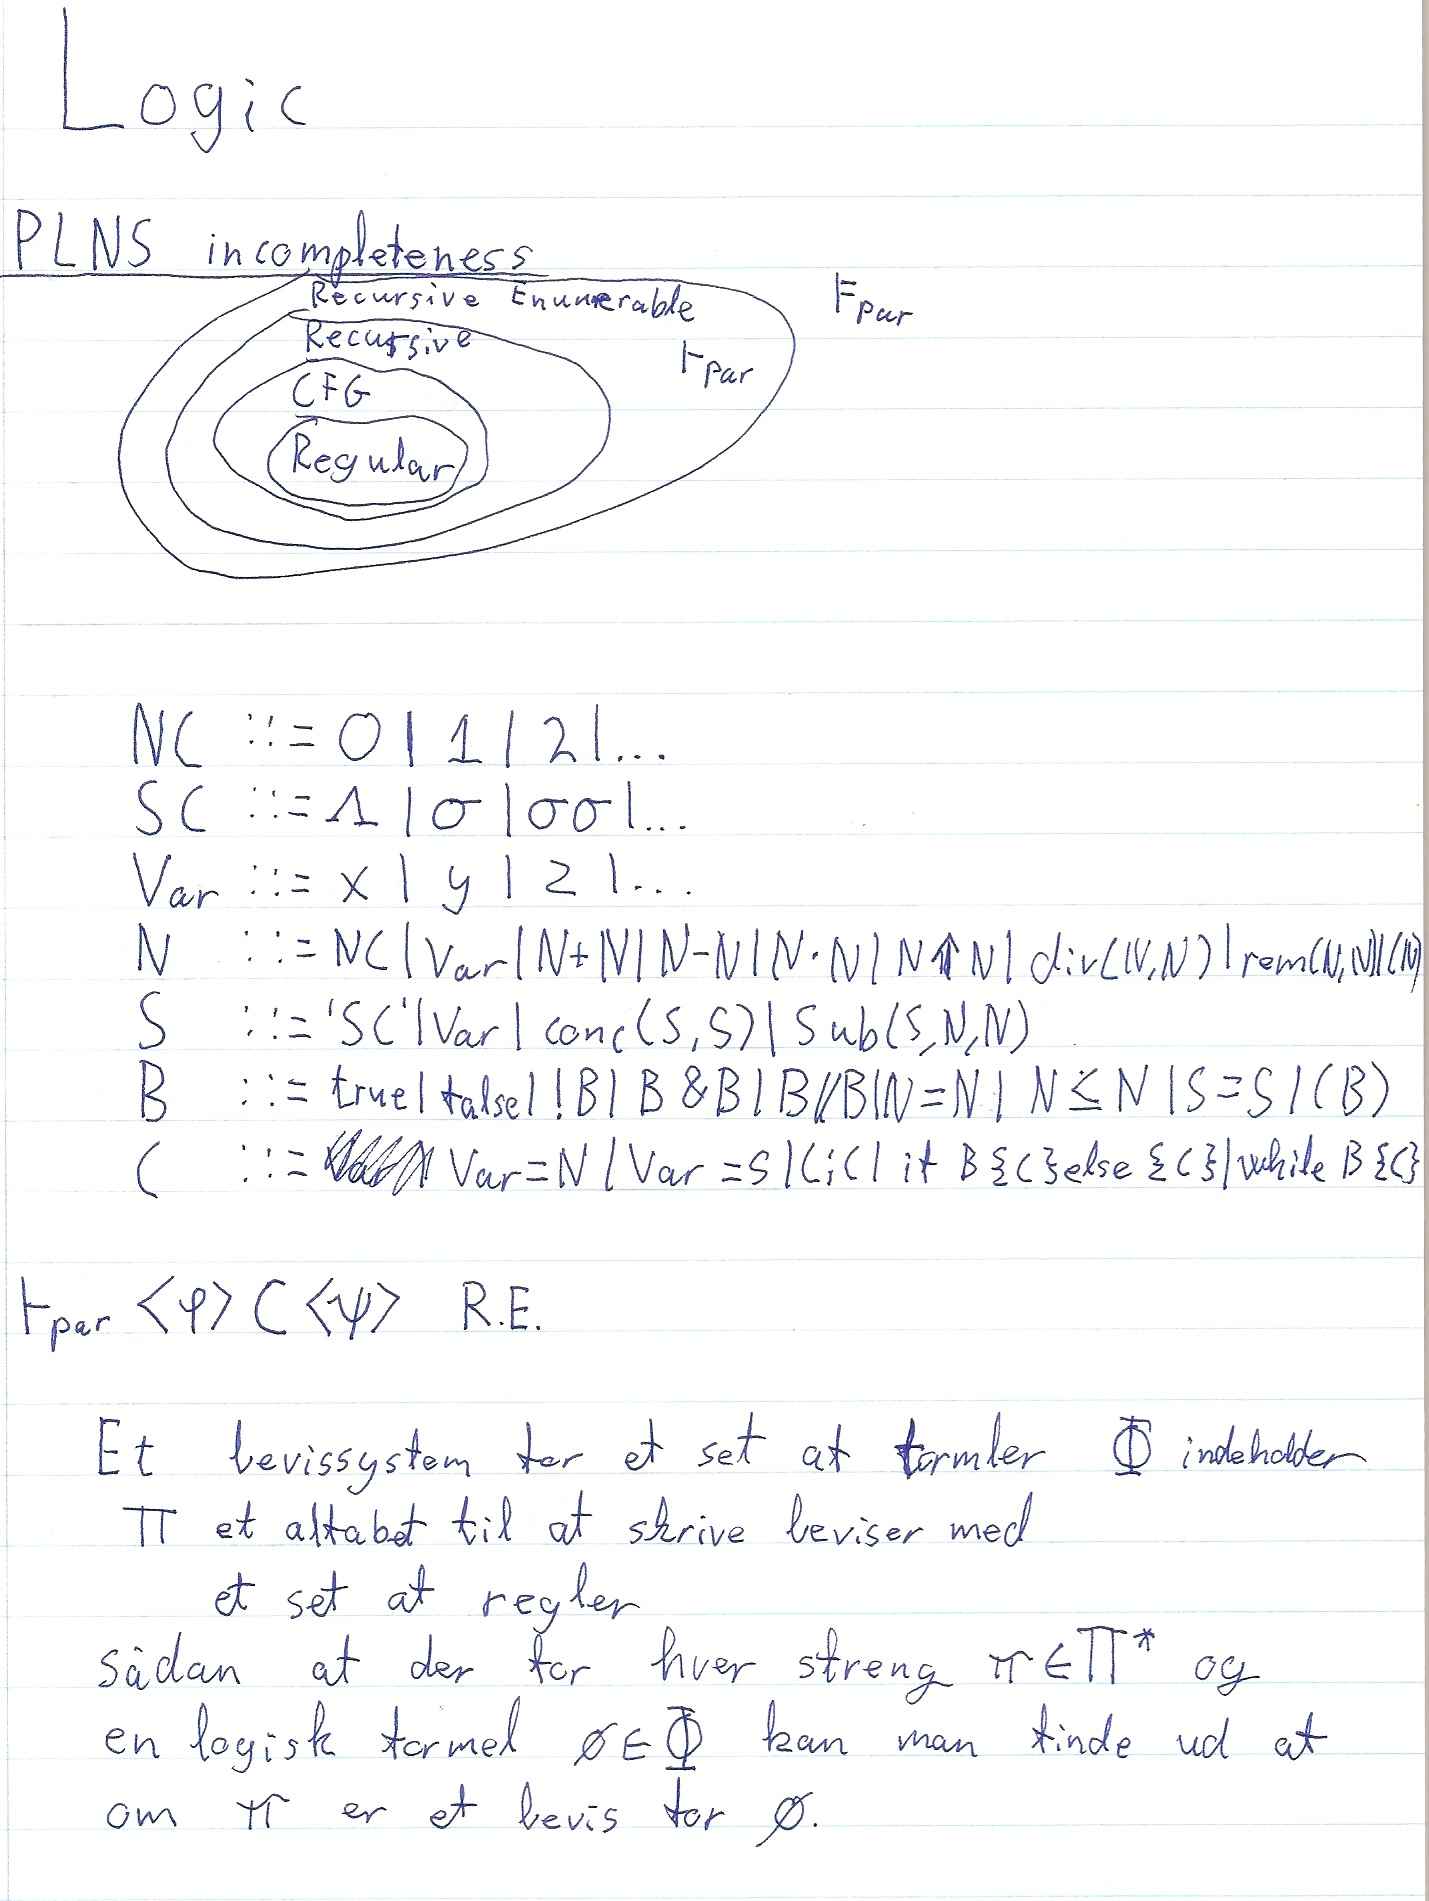 Logic
PLNS incompleteness
Recursive Enumerable
⊨par
Recursive
⊢par
CFG
Regular
NC ::= 0 | 1 | 2 | ...
SC ::= Λ | σ | σσ | ...
Var ::= x | y | z | ...
N ::= NC | Var | N+N | N-N | N·N | N↑N | div(N,N) | rem(N,N) | (N)
S ::= 'SC' | Var | conc(S,S) | Sub(S,N,N)
B ::= true | false | !B | B & B | B//B | N=N | N ≤ N | S=S | (B)
C ::= Var=N | Var=S | C;C | if B{C}else{C} | while B{C}
⊢par <φ> C <ψ> R.E.
Et bevissystem for et set af formler Φ indeholder
Π et alfabet til at skrive beviser med
et set af regler
sådan at der for hver streng π∈Π* og
en logisk formel ø∈Φ kan man finde ud af
om π er et bevis for ø.